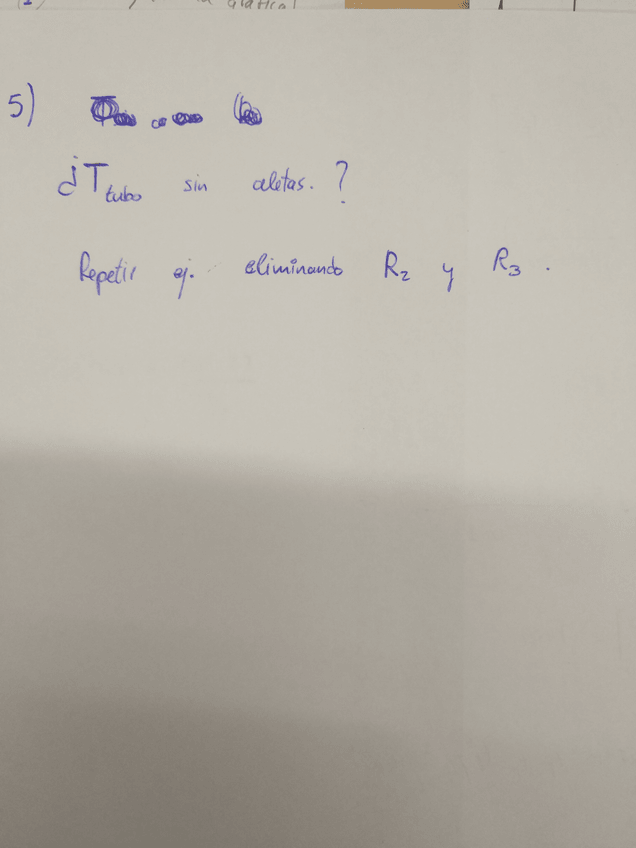 5)
¿T tubo sin aletas. ?
Repetir ej. eliminando R2 y R3 .